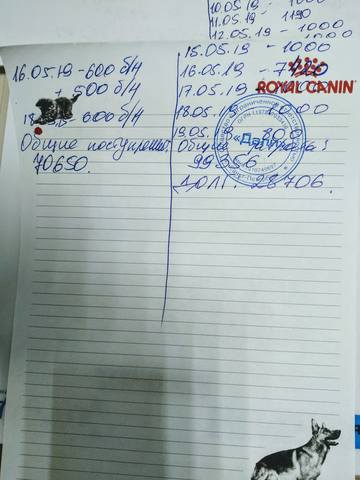 10.05.19 - 1000
11.05.19 - 1190
12.05.19 - 1000
15.05.19 - 1000
16.05.19 - 600 б/н
16.05.19 - 7420
+ 500 б/н
17.05.19 - 1000
ROYAL CANIN
600 б/н
18.05.19 - 1000
19.05.19 - 800
Общие поступления
70650.
Общие
99356
Долг: 28706.